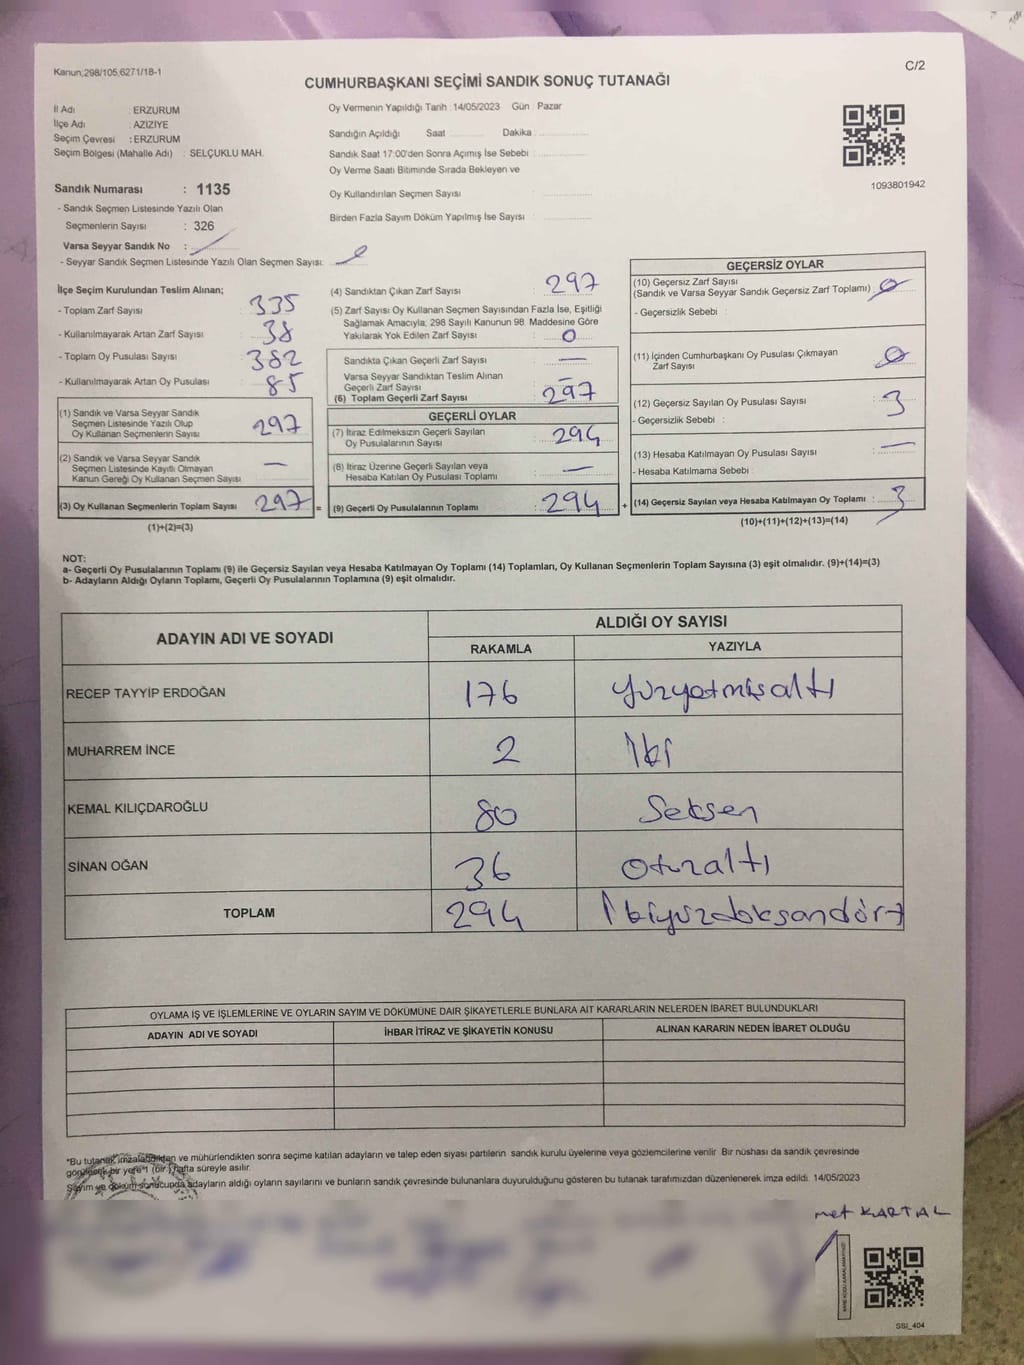 Kanun;298/105,6271/18-1
C/2
CUMHURBAŞKANI SEÇİMİ SANDIK SONUÇ TUTANAĞI
İl Adı : ERZURUM
İlçe Adı : AZİZİYE
Seçim Çevresi : ERZURUM
Seçim Bölgesi (Mahalle Adı) : SELÇUKLU MAH.
Sandık Numarası : 1135
- Sandık Seçmen Listesinde Yazılı Olan
Seçmenlerin Sayısı : 326
Varsa Seyyar Sandık No :
- Seyyar Sandık Seçmen Listesinde Yazılı Olan Seçmen Sayısı:
Oy Vermenin Yapıldığı Tarih : 14/05/2023 Gün : Pazar
Sandığın Açıldığı Saat Dakika
Sandık Saat 17:00'den Sonra Açımış İse Sebebi :
Oy Verme Saati Bitiminde Sırada Bekleyen ve
Oy Kullandırılan Seçmen Sayısı
Birden Fazla Sayım Döküm Yapılmış İse Sayısı :
1093801942
İlçe Seçim Kurulundan Teslim Alınan;
- Toplam Zarf Sayısı : 335
- Kullanılmayarak Artan Zarf Sayısı : 38
- Toplam Oy Pusulası Sayısı : 382
- Kullanılmayarak Artan Oy Pusulası : 85
(1) Sandık ve Varsa Seyyar Sandık
Seçmen Listesinde Yazılı Olup
Oy Kullanan Seçmenlerin Sayısı : 297
(2) Sandık ve Varsa Seyyar Sandık
Seçmen Listesinde Kayıtlı Olmayan
Kanun Gereği Oy Kullanan Seçmen Sayısı : —
(3) Oy Kullanan Seçmenlerin Toplam Sayısı : 297 =
(1)+(2)=(3)
(4) Sandıktan Çıkan Zarf Sayısı : 297
(5) Zarf Sayısı Oy Kullanan Seçmen Sayısından Fazla İse, Eşitliği
Sağlamak Amacıyla; 298 Sayılı Kanunun 98. Maddesine Göre
Yakılarak Yok Edilen Zarf Sayısı : 0
Sandıkta Çıkan Geçerli Zarf Sayısı : —
Varsa Seyyar Sandıktan Teslim Alınan
Geçerli Zarf Sayısı : —
(6) Toplam Geçerli Zarf Sayısı : 297
GEÇERLİ OYLAR
(7) İtiraz Edilmeksizin Geçerli Sayılan
Oy Pusulalarının Sayısı : 294
(8) İtiraz Üzerine Geçerli Sayılan veya
Hesaba Katılan Oy Pusulası Toplamı : —
(9) Geçerli Oy Pusulalarının Toplamı : 294 +
GEÇERSİZ OYLAR
(10) Geçersiz Zarf Sayısı
(Sandık ve Varsa Seyyar Sandık Geçersiz Zarf Toplamı) : 0
- Geçersizlik Sebebi :
(11) İçinden Cumhurbaşkanı Oy Pusulası Çıkmayan
Zarf Sayısı : 0
(12) Geçersiz Sayılan Oy Pusulası Sayısı : 3
- Geçersizlik Sebebi :
(13) Hesaba Katılmayan Oy Pusulası Sayısı : —
- Hesaba Katılmama Sebebi :
(14) Geçersiz Sayılan veya Hesaba Katılmayan Oy Toplamı : 3
(10)+(11)+(12)+(13)=(14)
NOT:
a- Geçerli Oy Pusulalarının Toplamı (9) ile Geçersiz Sayılan veya Hesaba Katılmayan Oy Toplamı (14) Toplamları, Oy Kullanan Seçmenlerin Toplam Sayısına (3) eşit olmalıdır. (9)+(14)=(3)
b- Adayların Aldığı Oyların Toplamı, Geçerli Oy Pusulalarının Toplamına (9) eşit olmalıdır.
ADAYIN ADI VE SOYADI
ALDIĞI OY SAYISI
RAKAMLA YAZIYLA
RECEP TAYYİP ERDOĞAN 176 Yüzyetmişaltı
MUHARREM İNCE 2 İki
KEMAL KILIÇDAROĞLU 80 Seksen
SİNAN OĞAN 36 Otuzaltı
TOPLAM 294 İkiyüzdoksandört
OYLAMA İŞ VE İŞLEMLERİNE VE OYLARIN SAYIM VE DÖKÜMÜNE DAİR ŞİKAYETLERLE BUNLARA AİT KARARLARIN NELERDEN İBARET BULUNDUKLARI
ADAYIN ADI VE SOYADI İHBAR İTİRAZ VE ŞİKAYETİN KONUSU ALINAN KARARIN NEDEN İBARET OLDUĞU
*Bu tutanak imzalandıktan ve mühürlendikten sonra seçime katılan adayların ve talep eden siyasi partilerin sandık kurulu üyelerine veya gözlemcilerine verilir. Bir nüshası da sandık çevresinde
görülecek bir yere 1 (bir) hafta süreyle asılır.
Sayım ve döküm sonucunda adayların aldığı oyların sayılarını ve bunların sandık çevresinde bulunanlara duyurulduğunu gösteren bu tutanak tarafımızdan düzenlenerek imza edildi. 14/05/2023
met KARTAL
SSI_404